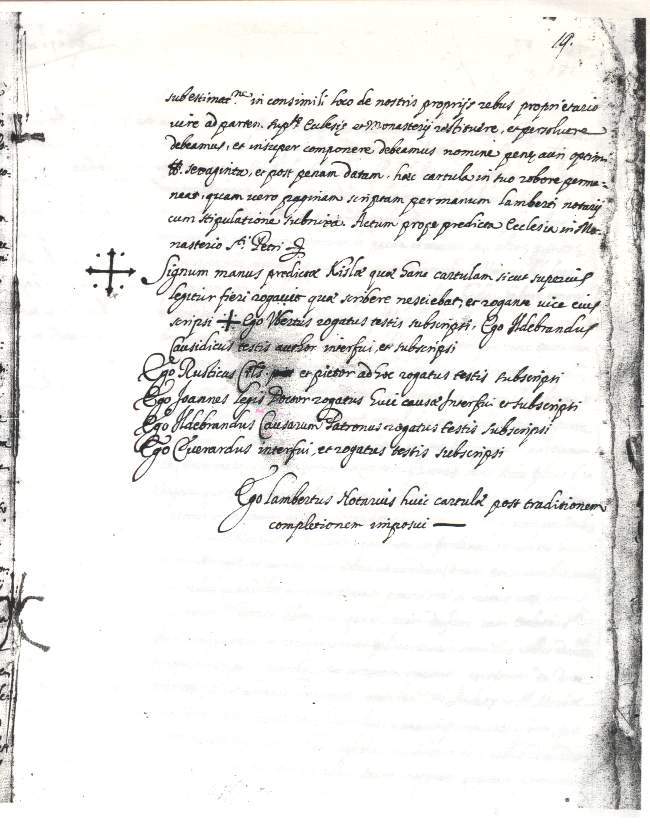 19.
sub estimat.ne in consimili loco de nostris proprijs rebus proprietario
iure ad parten. sup.te Ecclesię et Monasterij restituere, et persoluere
debeamus, et insuper componere debeamus nomine penę auri optim
seraginta, et post penam datam, hæc cartula in suo robore perma-
neat, quam vero paginam scriptam per manum lamberti notarij
cum stipulatione subnixa. Actum prope predicta Ecclesia in Mo-
nasterio S.ti Petri
Signum manus predictæ Kislæ quæ hanc cartulam sicut superius
legitur fieri rogauit quæ scribere nesciebat, et rogante vice eius
scripsi + Ego Vbertus rogatus testis subscripsi. Ego Ildebrandus
Causidicus testis author interfui, et subscripsi
Ego Rusticus et pictor ad hoc rogatus testis subscripsi
Ego Joannes legis Doctor rogatus huic causæ Interfui et subscripsi
Ego Ildebrandus Causarum Patronus rogatus testis subscripsi
Ego Euerardus interfui, et rogatus testis subscripsi
Ego lambertus Notarius huic cartulæ post traditionem
completionem imposui